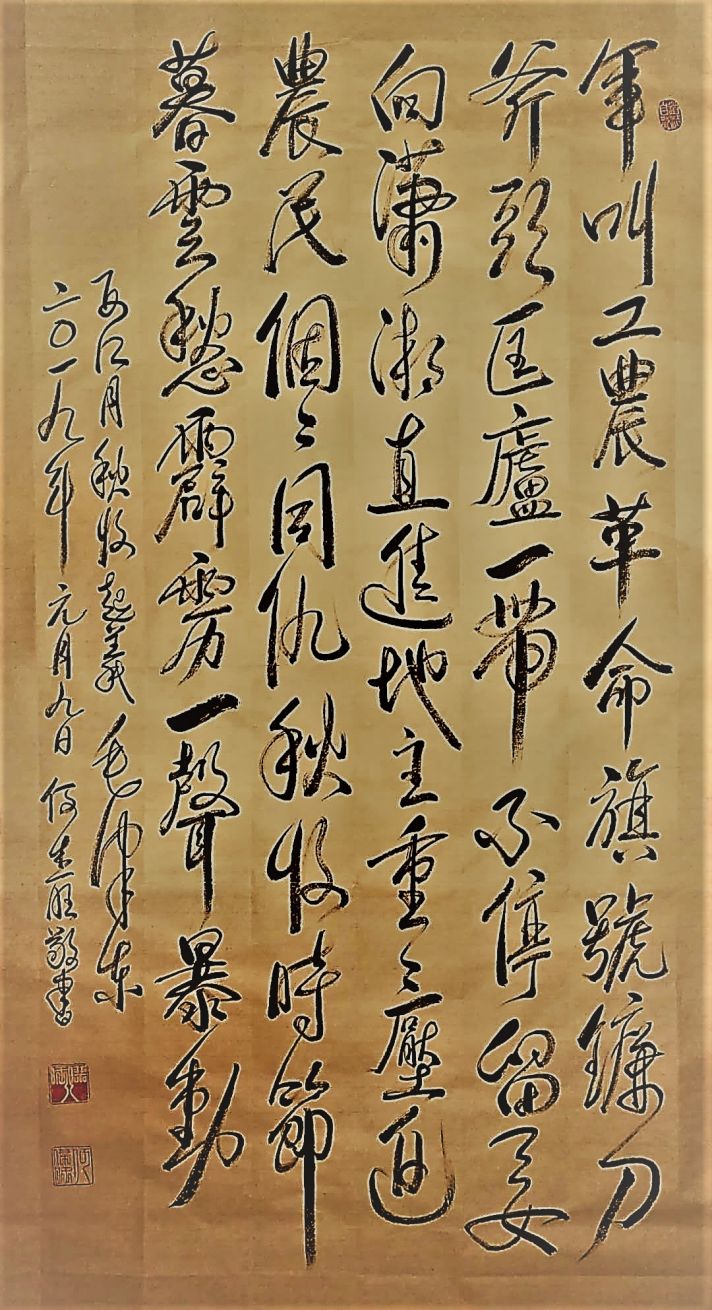 軍叫工農革命旗號鐮刀
斧頭匡廬一帶不停留要
向瀟湘直進地主重々壓迫
農民個々同仇秋收時節
暮雲愁霹雳一聲暴動
西江月秋收起義毛澤東
二〇一九年元月九日何敬書